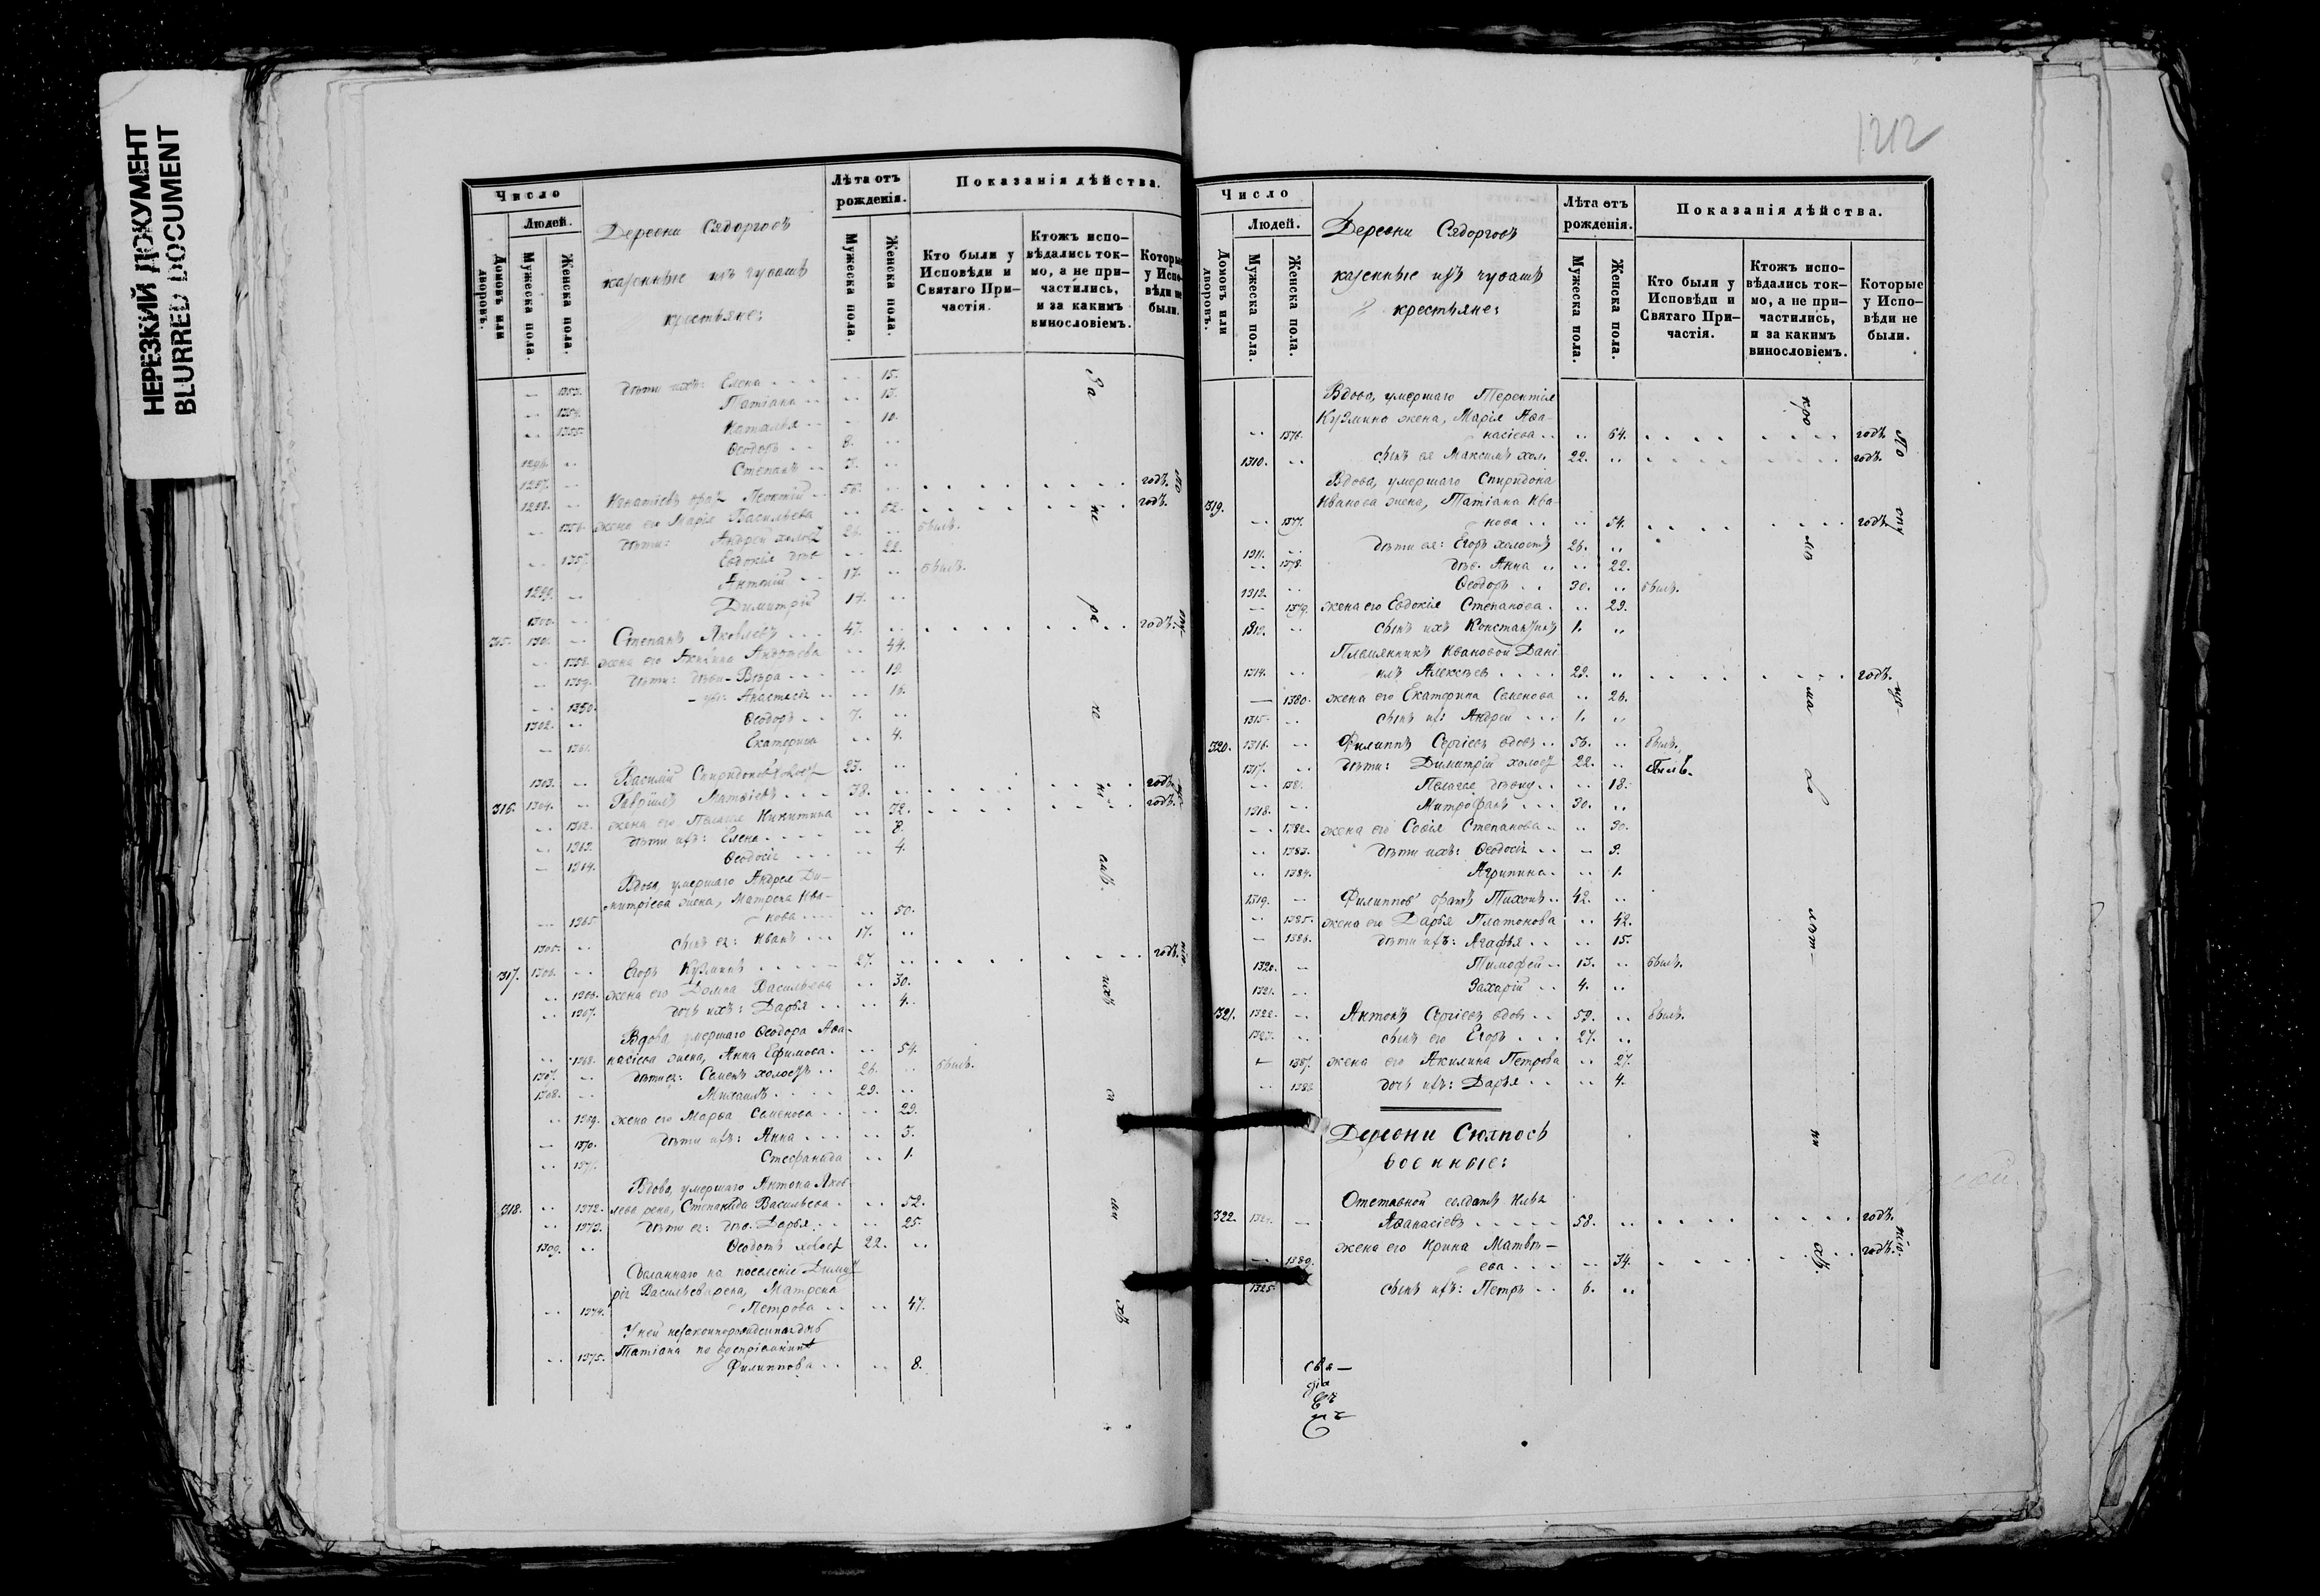 НЕРЕЗКИЙ ДОКУМЕНТ
BLURRED DOCUMENT
Число
Людей.
Домовъ или дворовъ.
Мужеска пола.
Женска пола.
Деревни Сядоргосъ
казенные изъ чувашъ
крестьяне:
Лѣта отъ рожденія.
Мужеска пола.
Женска пола.
Показанія дѣйства.
Кто были у Исповѣди и Святаго Причастія.
Ктожъ исповѣдались токмо, а не причастились, и за какимъ винословіемъ.
Которые у Исповѣди не были.
1353. дѣти ихъ: Елена 15.
1354. Татіана 13.
1355. Наталья 10.
1296. Ѳеодоръ 8.
1297. Степанъ 3.
1298. Игнатіевъ братъ 56. годъ.
1356. жена его Марія Васильева 52. годъ.
дѣти: Андрей холос 26. былъ.
1357. Евдокія дѣв 22.
1299. Антоній 17. былъ.
1300. Димитрій 14.
315. 1301. Степанъ Яковлевъ 47. годъ.
1358. жена его Акилина Андреева 44.
1359. дѣти: дѣви- Вѣра 19.
1360. Анастасія 16.
1302. Ѳеодоръ 7.
1361. Екатерина 4.
1303. Василій Спиридоновъ холост 23.
316. 1304. Гавріилъ Матвѣевъ 38. годъ.
1362. жена его Пелагея Никитина 32. годъ.
1363. дѣти ихъ: Елена 8.
1364. Ѳеодосія 4.
Вдова, умершаго Андрея Ди-
митріева жена, Матрена Ива-
1365. нова 50.
1305. сынъ ея: Иванъ 17.
317. 1306. Егоръ Кузминъ 27. годъ.
1366. жена его Домна Васильева 30.
1367. дочь ихъ: Дарья 4.
Вдова, умершаго Ѳеодора Аѳа-
1368. насіева жена, Анна Ефимова. 54.
1307. дѣти ея: Семенъ холост 26. былъ.
1308. Михаилъ 29.
1369. жена его Марѳа Семенова 29.
1370. дѣти ихъ: Анна 3.
1371. Стефанида 1.
Вдова, умершаго Антона Яков-
318. 1372. лева жена, Степанида Васильева 52.
1373. дѣти ея: дѣв. Дарья 25.
1309. Ѳеодотъ холост 22.
Сосланнаго на поселеніе Димит
рія Васильева жена, Матрена
1374. Петрова 47.
У ней незаконнорожденная дочь
1375. Татіана по воспріемнику
Филиппова 8.
За не ра че ні емъ ихъ
1212
Число
Людей.
Домовъ или дворовъ.
Мужеска пола.
Женска пола.
Деревни Сядоргосъ
казенные изъ чувашъ
крестьяне:
Лѣта отъ рожденія.
Мужеска пола.
Женска пола.
Показанія дѣйства.
Кто были у Исповѣди и Святаго Причастія.
Ктожъ исповѣдались токмо, а не причастились, и за какимъ винословіемъ.
Которые у Исповѣди не были.
Вдова, умершаго Терентія
Кузмина жена, Марія Аѳа-
1376. насіева 64. годъ.
1310. сынъ ея Максимъ хол. 22. годъ.
Вдова, умершаго Спиридона
319. Иванова жена, Татіана Ива-
1377. нова 54. годъ
1311. дѣти ея: Егоръ холостъ 26.
1378. дѣв. Анна 22.
1312. Ѳеодоръ 30. былъ.
1379. жена его Евдокія Степанова. 29.
1313. сынъ ихъ Константинъ 1.
Племянникъ Ивановой Дані
1314. илъ Алексѣевъ 29. годъ.
1380. жена его Екатерина Семенова 26.
1315. сынъ ихъ Андрей 1.
320. 1316. Филиппъ Сергіевъ вдовъ 56. былъ.
1317. дѣти: Димитрій холост 22. былъ.
1381. Пелагея дѣвиц 18.
1318. Митрофанъ 30.
1382. жена его Софія Степанова 30.
1383. дѣти ихъ: Ѳеодосія 3.
1384. Агрипина 1.
1319. Филиппов братъ Тихонъ 42.
1385. жена его Дарья Платонова 42.
1386. дѣти ихъ: Агафья 15.
1320. Тимофей 13. былъ.
1321. Захарій 4.
321. 1322. Антонъ Сергіевъ вдовъ 59. былъ.
1323. сынъ его Егоръ 27.
1387. жена его Акилина Петрова 27.
1388. дочь ихъ: Дарья 4.
Деревни Сюлпосъ
военные:
Отставной солдатъ Илья
322. 1324. Аѳанасіевъ 58. годъ.
жена его Ирина Матвѣ-
1389. ева 34. годъ.
1325. сынъ ихъ: Петръ 6.